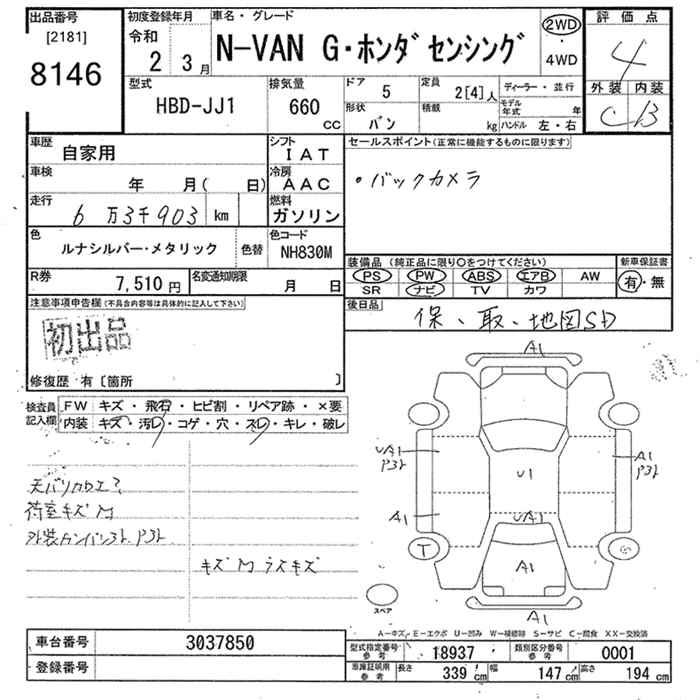 出品番号 [2181] 8146
初度登録年月 令和 2 3月
車名・グレード N-VAN G・ホンダセンシング
2WD・4WD
評価点 4
外装 内装 C B
型式 HBD-JJ1
排気量 660 cc
ドア 5
形状 バン
定員 2[4]人
積載 kg
ディーラー・並行
モデル年式 年
ハンドル 左・右
車歴 自家用
シフト IAT
車検 年 月( 日)
冷房 AAC
走行 6万3千903 km
燃料 ガソリン
色 ルナシルバー・メタリック 色替
色コード NH830M
R券 7,510円
名変通知期限 月 日
セールスポイント(正常に機能するものに限ります)
・バックカメラ
装備品 (純正品に限り○をつけてください)
PS PW ABS エアB AW
SR ナビ TV カワ
新車保証書 有・無
後日品
保、取、地図SD
注意事項申告欄(不具合内容等は具体的に記入して下さい)
初出品
修復歴 有〔箇所 〕
検査員記入欄
FW キズ・飛石・ヒビ割・リペア跡・×要
内装 キズ・汚レ・コゲ・穴・スレ・キレ・破レ
荷室キズM
キズM ラスキズ
A1
UA1
P3ﾄ
A1
P3ﾄ
U1
A1
UA1
T
A1
A1
スペア
A-キズ E-エクボ U-凹み W-補修跡 S-サビ C-腐食 XX-交換済
車台番号 3037850
登録番号
型式指定番号 参考 18937
類別区分番号 参考 0001
車庫証明用 参考 長さ 339cm 幅 147cm 高さ 194cm